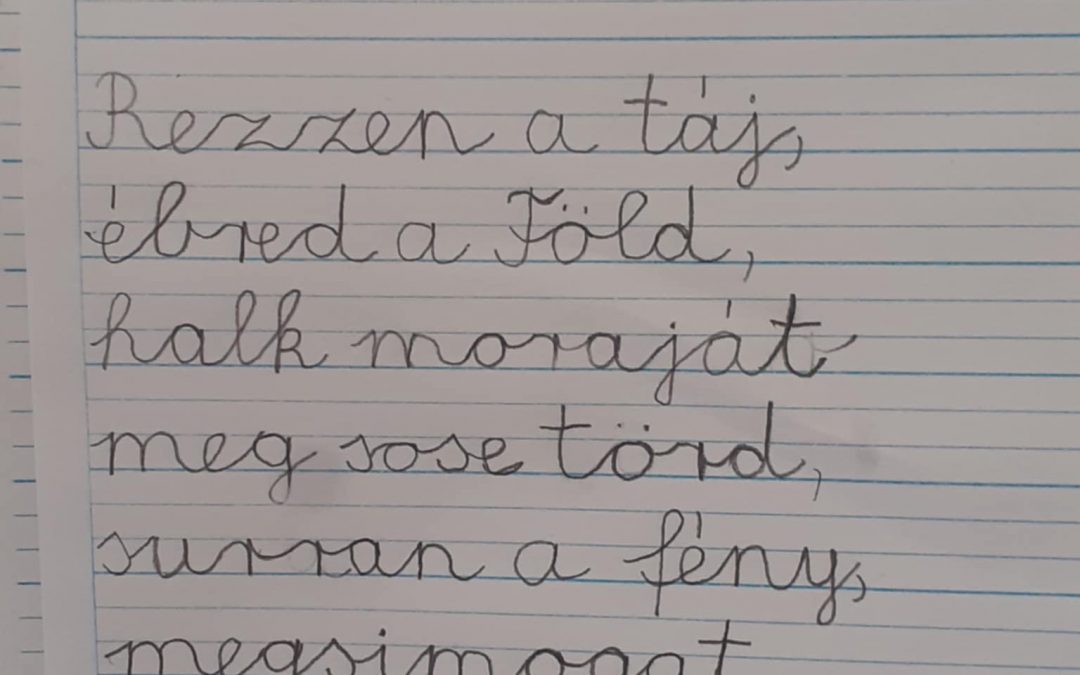 Rezzen a táj,
ébred a Föld,
halk moraját
meg sose törd,
surran a fény,
megsimogat